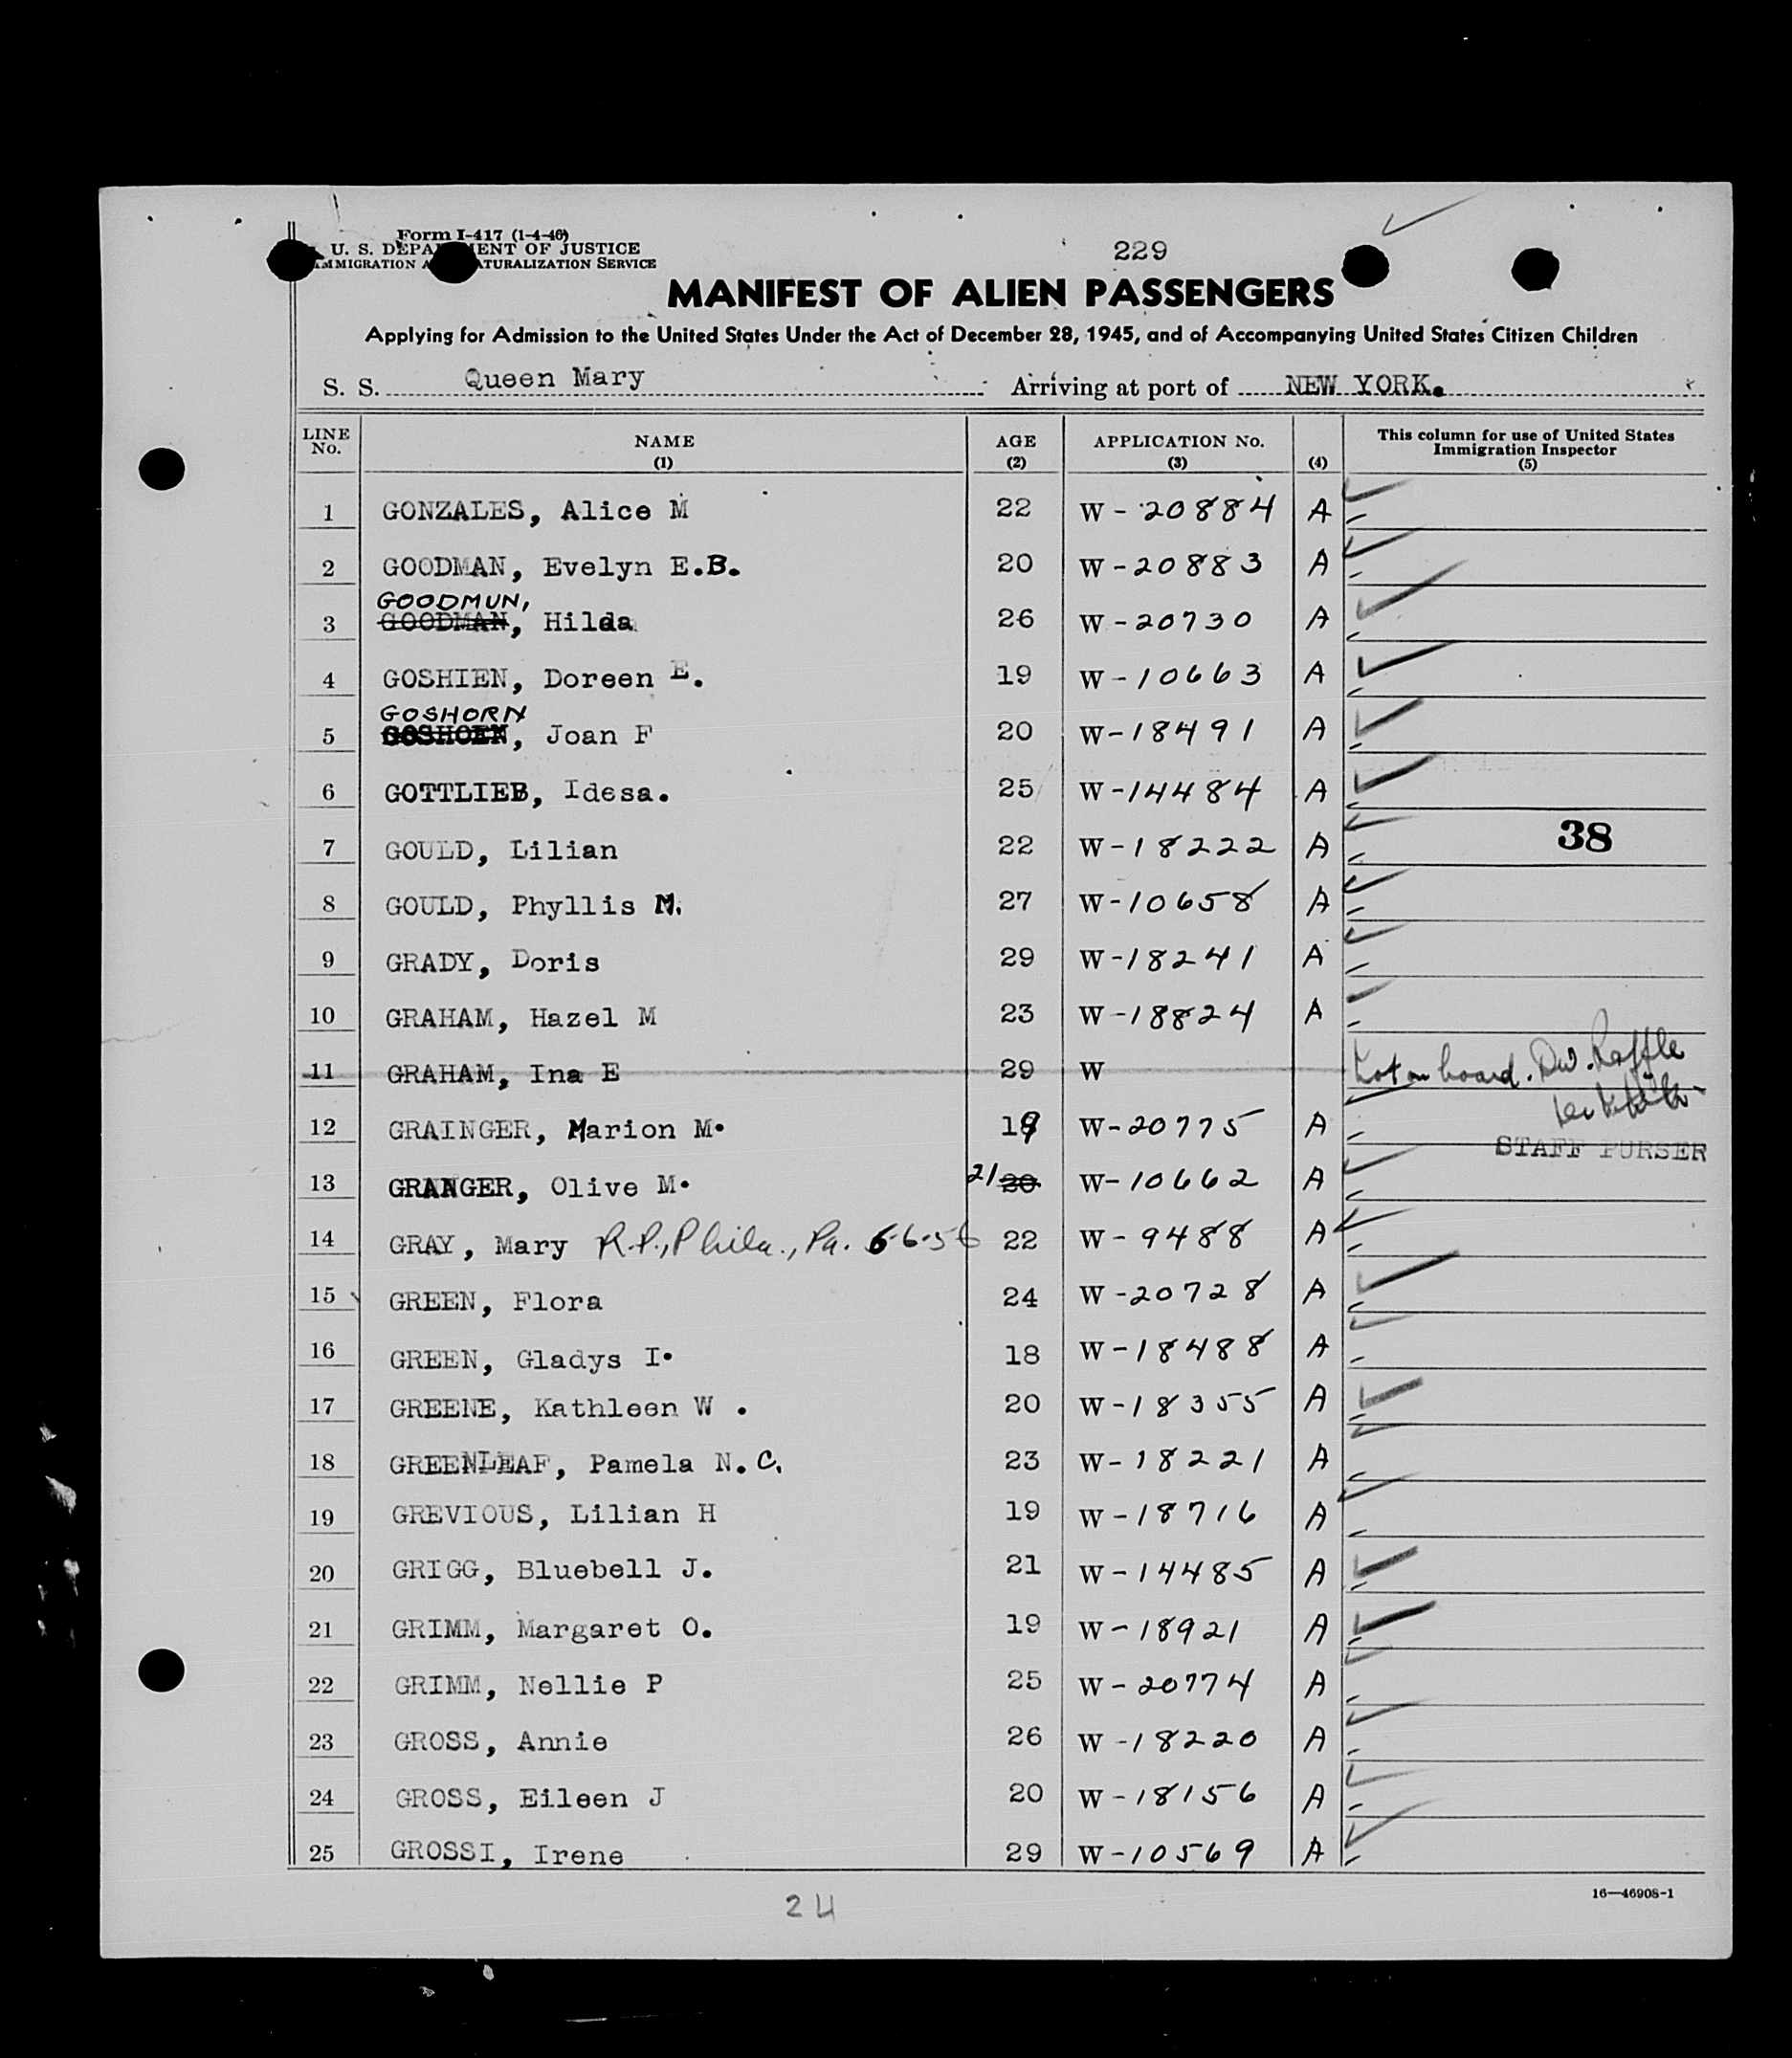 Form I-417 (1-4-46)
U. S. DEPARTMENT OF JUSTICE
IMMIGRATION AND NATURALIZATION SERVICE
229
MANIFEST OF ALIEN PASSENGERS
Applying for Admission to the United States Under the Act of December 28, 1945, and of Accompanying United States Citizen Children
S. S. Queen Mary Arriving at port of NEW YORK.
LINE No. NAME (1) AGE (2) APPLICATION No. (3) (4) This column for use of United States Immigration Inspector (5)
1 GONZALES, Alice M 22 W-20884 A
2 GOODMAN, Evelyn E.B. 20 W-20883 A
GOODMUN,
3 GOODMAN, Hilda 26 W-20730 A
4 GOSHIEN, Doreen E. 19 W-10663 A
GOSHORN
5 GOSHOEN, Joan F 20 W-18491 A
6 GOTTLIEB, Idesa. 25 W-14484 A
7 GOULD, Lilian 22 W-18222 A 38
8 GOULD, Phyllis M. 27 W-10658 A
9 GRADY, Doris 29 W-18241 A
10 GRAHAM, Hazel M 23 W-18824 A
11 GRAHAM, Ina E 29 W Not on board.
12 GRAINGER, Marion M. 19 W-20775 A
STAFF PURSER
13 GRANGER, Olive M. 21 20 W-10662 A
14 GRAY, Mary R.P., Phila., Pa. 6-6-56 22 W-9488 A
15 GREEN, Flora 24 W-20728 A
16 GREEN, Gladys I. 18 W-18488 A
17 GREENE, Kathleen W . 20 W-18355 A
18 GREENLEAF, Pamela N.C. 23 W-18221 A
19 GREVIOUS, Lilian H 19 W-18716 A
20 GRIGG, Bluebell J. 21 W-14485 A
21 GRIMM, Margaret O. 19 W-18921 A
22 GRIMM, Nellie P 25 W-20774 A
23 GROSS, Annie 26 W-18220 A
24 GROSS, Eileen J 20 W-18156 A
25 GROSSI, Irene 29 W-10569 A
16—46908-1
24